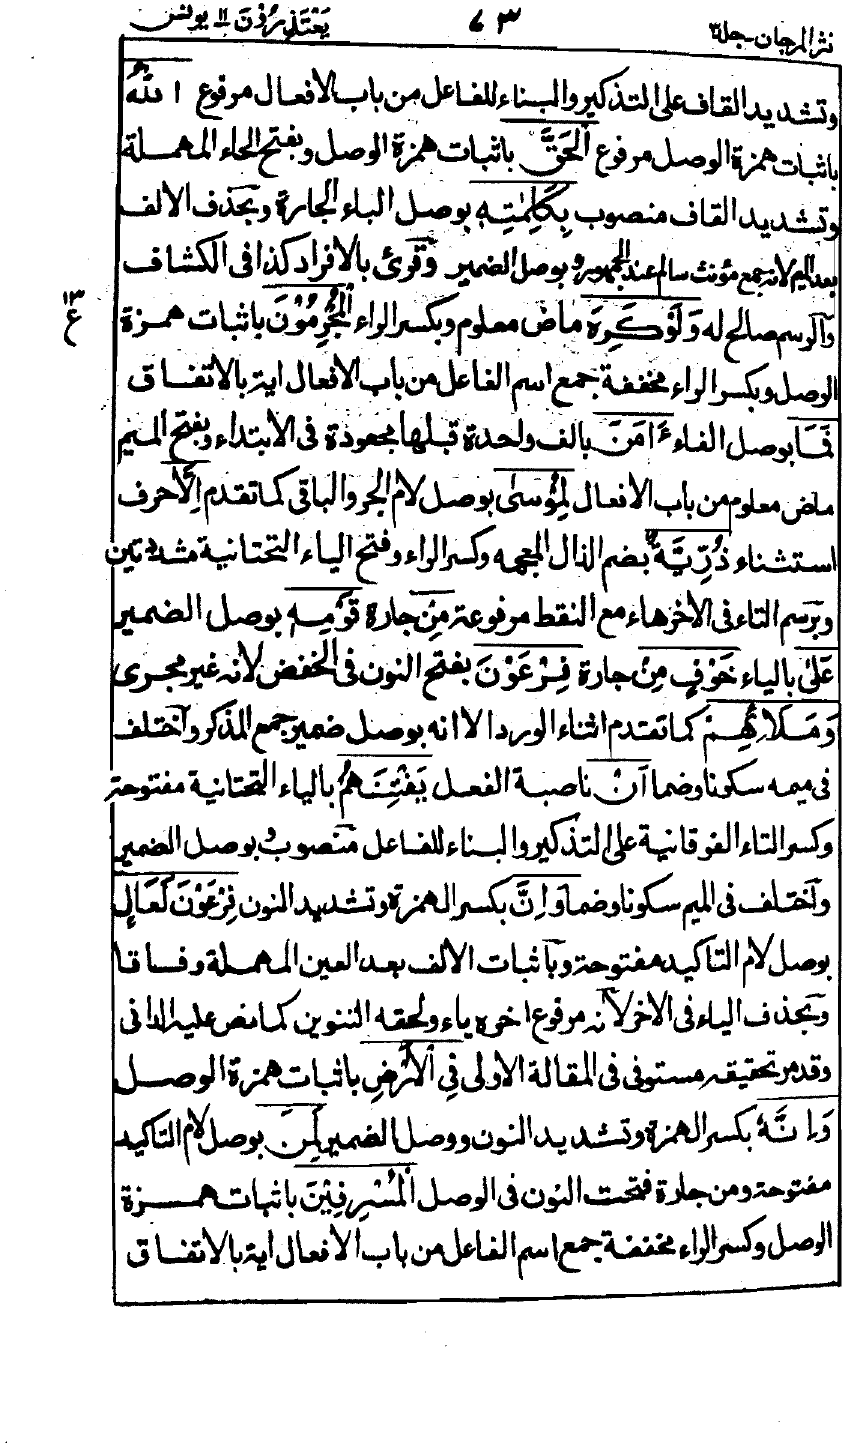 نثر المرجان-جلد٣ ٧٣ يَعْتَذِرُوْنَ ١١ يونس
وتشديد القاف على التذكير والبناء للفاعل من باب الافعال مرفوع اللّٰهُ
باثبات همزة الوصل مرفوع الْحَقَّ باثبات همزة الوصل وبفتح الحاء المهملة
وتشديد القاف منصوب بِكَلِمٰتِهٖ بوصل الباء الجارة وبحذف الالف
بعد الميم لانه جمع مؤنث سالم عند الجمهور وبوصل الضمير وقرئ بالافراد كذا فى الكشاف
والرسم صالح له وَلَوْ كَرِهَ ماض معلوم وبكسر الراء الْمُجْرِمُوْنَ باثبات همزة
١٣
ع
الوصل وبكسر الراء مخففة جمع اسم الفاعل من باب الافعال اية بالاتفاق
فَمَا بوصل الفاء ءَامَنَ بالف واحدة قبلها مجعودة فى الابتداء وبفتح الميم
ماض معلوم من باب الافعال لِمُوْسٰى بوصل لام الجر والباقى كما تقدم اِلَّا حرف
استثناء ذُرِّيَّةٌ بضم الذال المعجمه وكسر الراء وفتح الياء التحتانية مشددتين
وبرسم التاء فى الاخر هاء مع النقط مرفوعة مِنْ جارة قَوْمِهٖ بوصل الضمير
عَلٰى بالياء خَوْفٍ مِنْ جارة فِرْعَوْنَ بفتح النون فى الخفض لانه غير مجرى
وَمَلَائِهِمْ كما تقدم اثناء الورد الا انه بوصل ضمير جمع المذكر واختلف
فى ميمه سكونا وضما اَنْ ناصبة الفعل يَفْتِنَهُمْ بالياء التحتانية مفتوحة
وكسر التاء الفوقانية على التذكير والبناء للفاعل منصوب وبوصل الضمير
واختلف فى الميم سكونا وضما وَاِنَّ بكسر الهمزة وتشديد النون فِرْعَوْنَ لَعَالٍ
بوصل لام التاكيد مفتوحة وباثبات الالف بعد العين المهملة وفاقا
وبحذف الياء فى الاخر لانه مرفوع اخره ياء ولحقه التنوين كما نص عليه الدانى
وقد مر تحقيقه مستوفى فى المقالة الاولى فِى الْاَرْضِ باثبات همزة الوصل
وَاِنَّهٗ بكسر الهمزة وتشديد النون ووصل الضمير لَمِنَ بوصل لام التاكيد
مفتوحة ومن جارة فتحت النون فى الوصل الْمُسْرِفِيْنَ باثبات همزة
الوصل وكسر الراء مخففة جمع اسم الفاعل من باب الافعال اية بالاتفاق